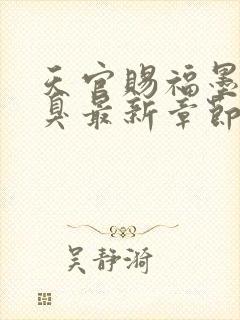 天官赐福墨
臭最新章節
吴静漪